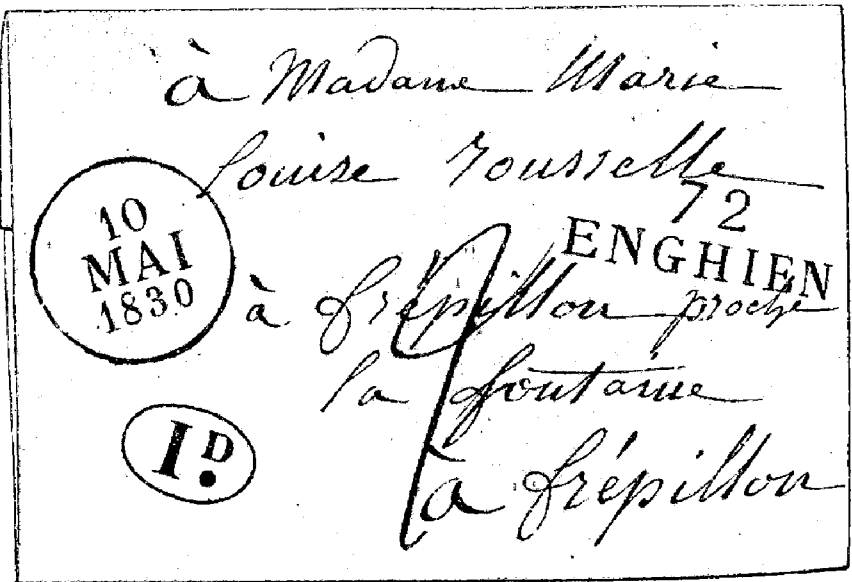 à Madame Marie
Louise rousselle
72
ENGHIEN
10
MAI
1830
à frépillon proche
la fontaine
à frépillon
1D.